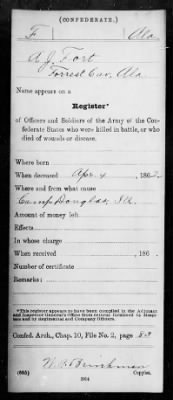 (CONFEDERATE.)
F Ala
A J Fort
Forrest Cav., Ala
Name appears on a
Register*
of Officers and Soldiers of the Army of the Con-
federate States who were killed in battle, or who
died of wounds or disease.
Where born
When deceased Apr. 4, 1862.
Where and from what cause
Camp Douglas, Ill.
Amount of money left
Effects
In whose charge
When received , 186 .
Number of certificate
Remarks:
*This register appears to have been compiled in the Adjutant
and Inspector General's Office from returns furnished by Hospi-
tals and by regimental and Company Officers.
Confed. Arch., Chap. 10, File No. 2, page 83
(655) Copyist.